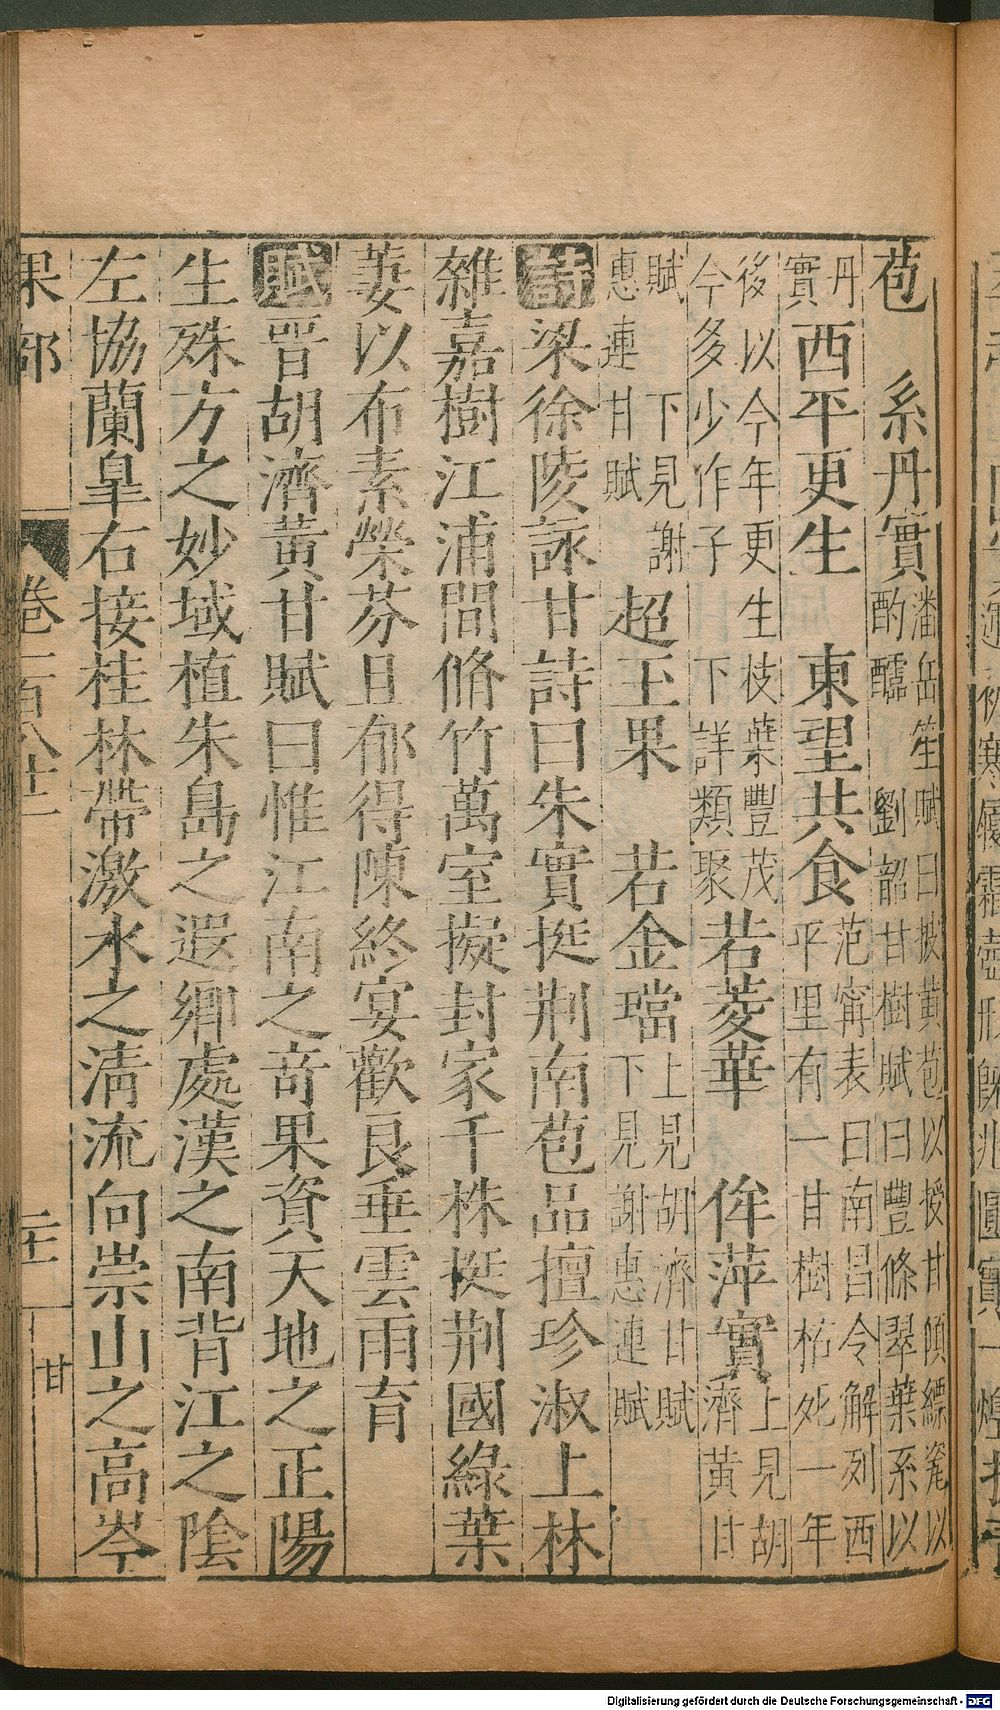 苞　系丹實潘岳笙賦曰披黃苞以授甘傾縹瓷以酌醽　劉韶甘樹賦曰豐條翠葉系以
丹實西平更生　東望共食范甯表曰南昌令解列西平里有一甘樹枯死一年
後以今年更生枝葉豐茂今多少作子下詳類聚若菱華　侔萍實上見胡濟黃甘
賦　下見謝惠連甘賦超玉果　若金璫上見胡濟甘賦下見謝惠連賦
詩梁徐陵詠甘詩曰朱實挺荆南苞品擅珍淑上林
雜嘉樹江浦間脩竹萬室擬封家千株挺荆國綠葉
萋以布素榮芬且郁得陳終宴歡良垂雲雨育
賦晋胡濟黄甘賦曰惟江南之奇果資天地之正陽
生殊方之妙域植朱島之遐鄉處漢之南背江之陰
左協蘭皐右接桂林帶激水之清流向崇山之高岑
果部　卷一百八十二　二十二　甘
Digitalisierung gefördert durch die Deutsche Forschungsgemeinschaft - DFG